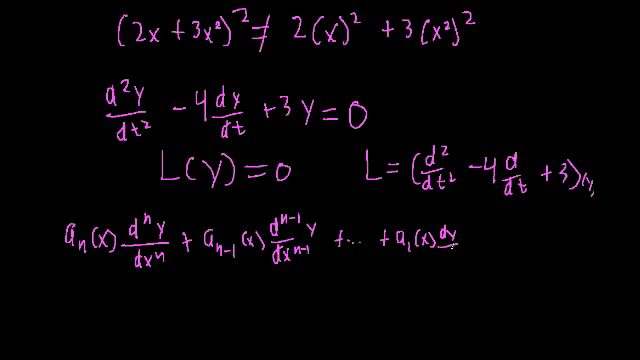 (2x + 3x²)² ≠ 2(x)² + 3(x²)²
d²y/dt² - 4 dy/dt + 3y = 0
L(y) = 0 L = (d²/dt² - 4 d/dt + 3)(y)
aₙ(x) dⁿy/dxⁿ + aₙ₋₁(x) dⁿ⁻¹y/dxⁿ⁻¹ + ... + a₁(x) dy